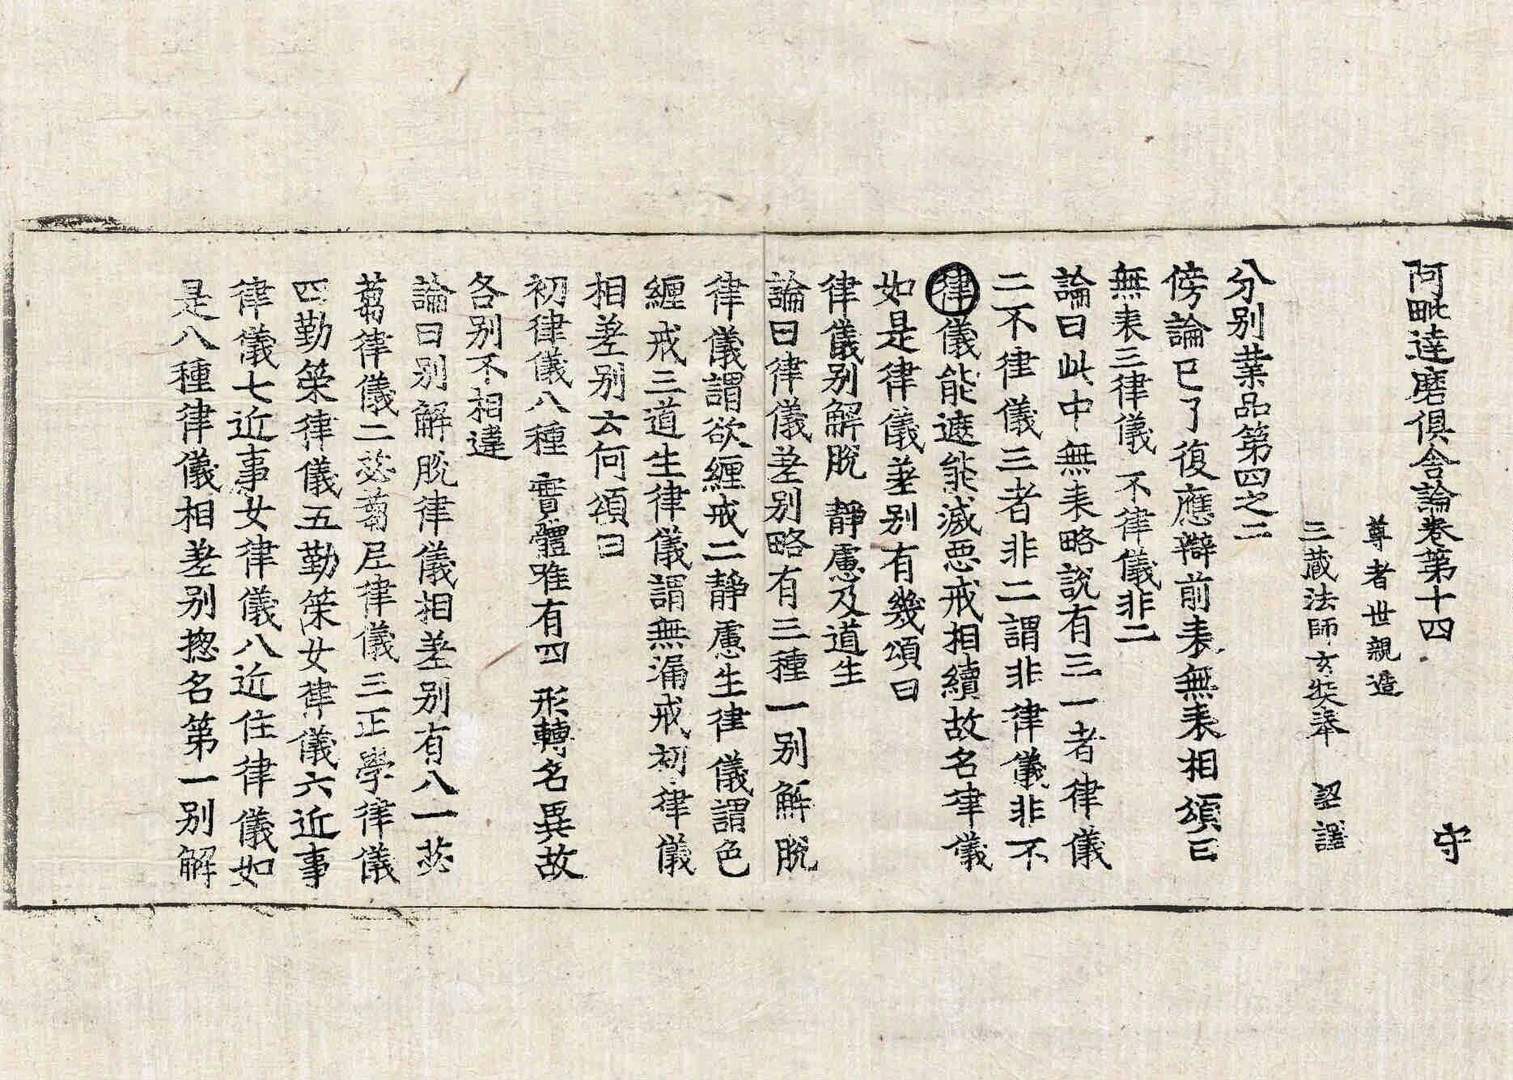 阿毗達磨俱舍論卷第十四　守
尊者世親造
三藏法師玄奘奉　詔譯
分別業品第四之二
傍論已了復應辯前表無表相頌曰
無表三律儀　不律儀非二
論曰此中無表略說有三一者律儀
二不律儀三者非二謂非律儀非不
律儀能遮能滅惡戒相續故名律儀
如是律儀差別有幾頌曰
律儀別解脫　靜慮及道生
論曰律儀差別略有三種一別解脫
律儀謂欲纏戒二靜慮生律儀謂色
纏戒三道生律儀謂無漏戒初律儀
相差別云何頌曰
初律儀八種　實體唯有四　形轉名異故
各別不相違
論曰別解脫律儀相差別有八一苾
蒭律儀二苾蒭尼律儀三正學律儀
四勤策律儀五勤策女律儀六近事
律儀七近事女律儀八近住律儀如
是八種律儀相差別揔名第一別解